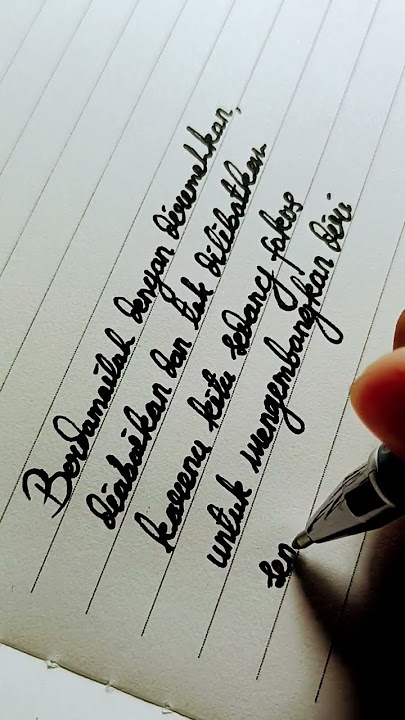 Berdamailah dengan diremehkan,
diabaikan dan tak dilibatkan
karena kita sedang fokus
untuk mengembangkan diri
sen